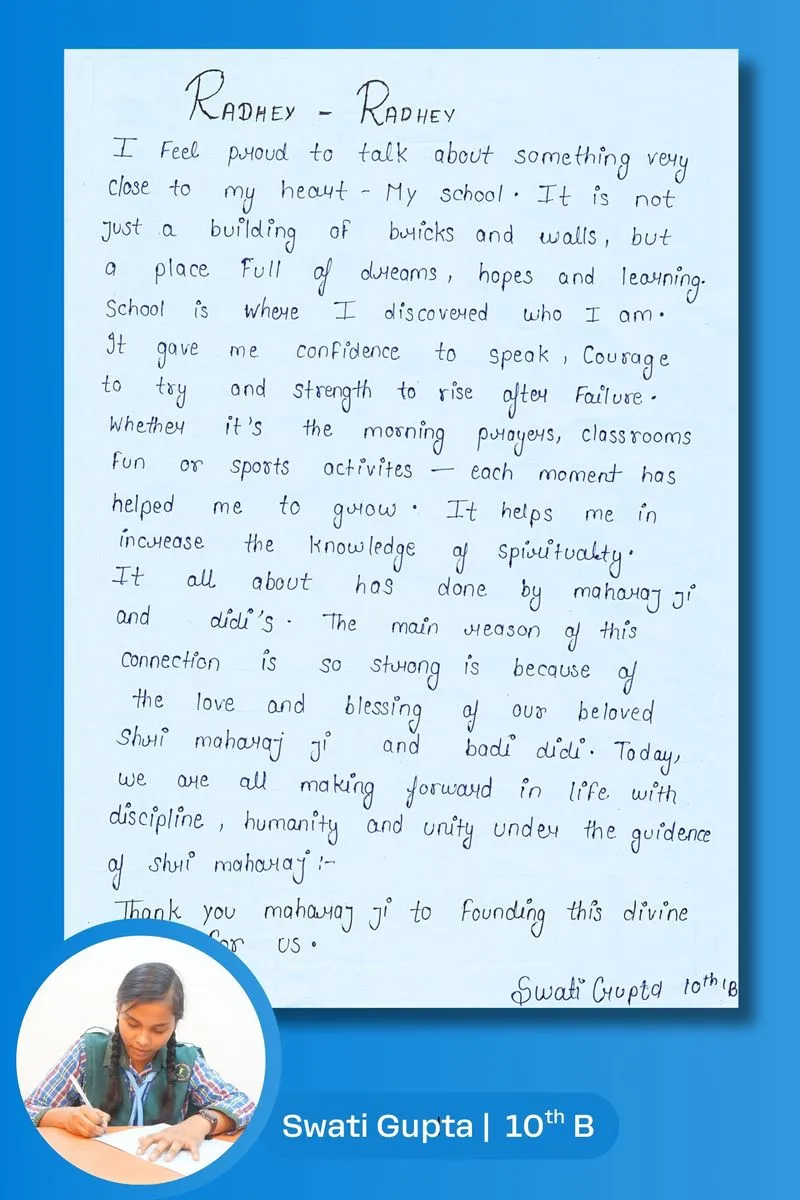 RADHEY - RADHEY
I Feel proud to talk about something very
close to my heart - My school. It is not
just a building of bricks and walls, but
a place Full of dreams, hopes and learning.
School is where I discovered who I am.
It gave me confidence to speak, Courage
to try and strength to rise after Failure.
Whether it's the morning prayers, classrooms
fun or sports activites — each moment has
helped me to grow. It helps me in
increase the knowledge of
It all about has done by maharaj ji
and didi's. The main reason of this
connection is so strong is because of
the love and blessing of our beloved
Shri maharaj ji and badi didi. Today,
we are all making forward in life with
discipline, humanity and unity under the guidence
of shri maharaj :-
Thank you maharaj ji to founding this divine
for us.
Swati Gupta 10th 'B
Swati Gupta | 10th B